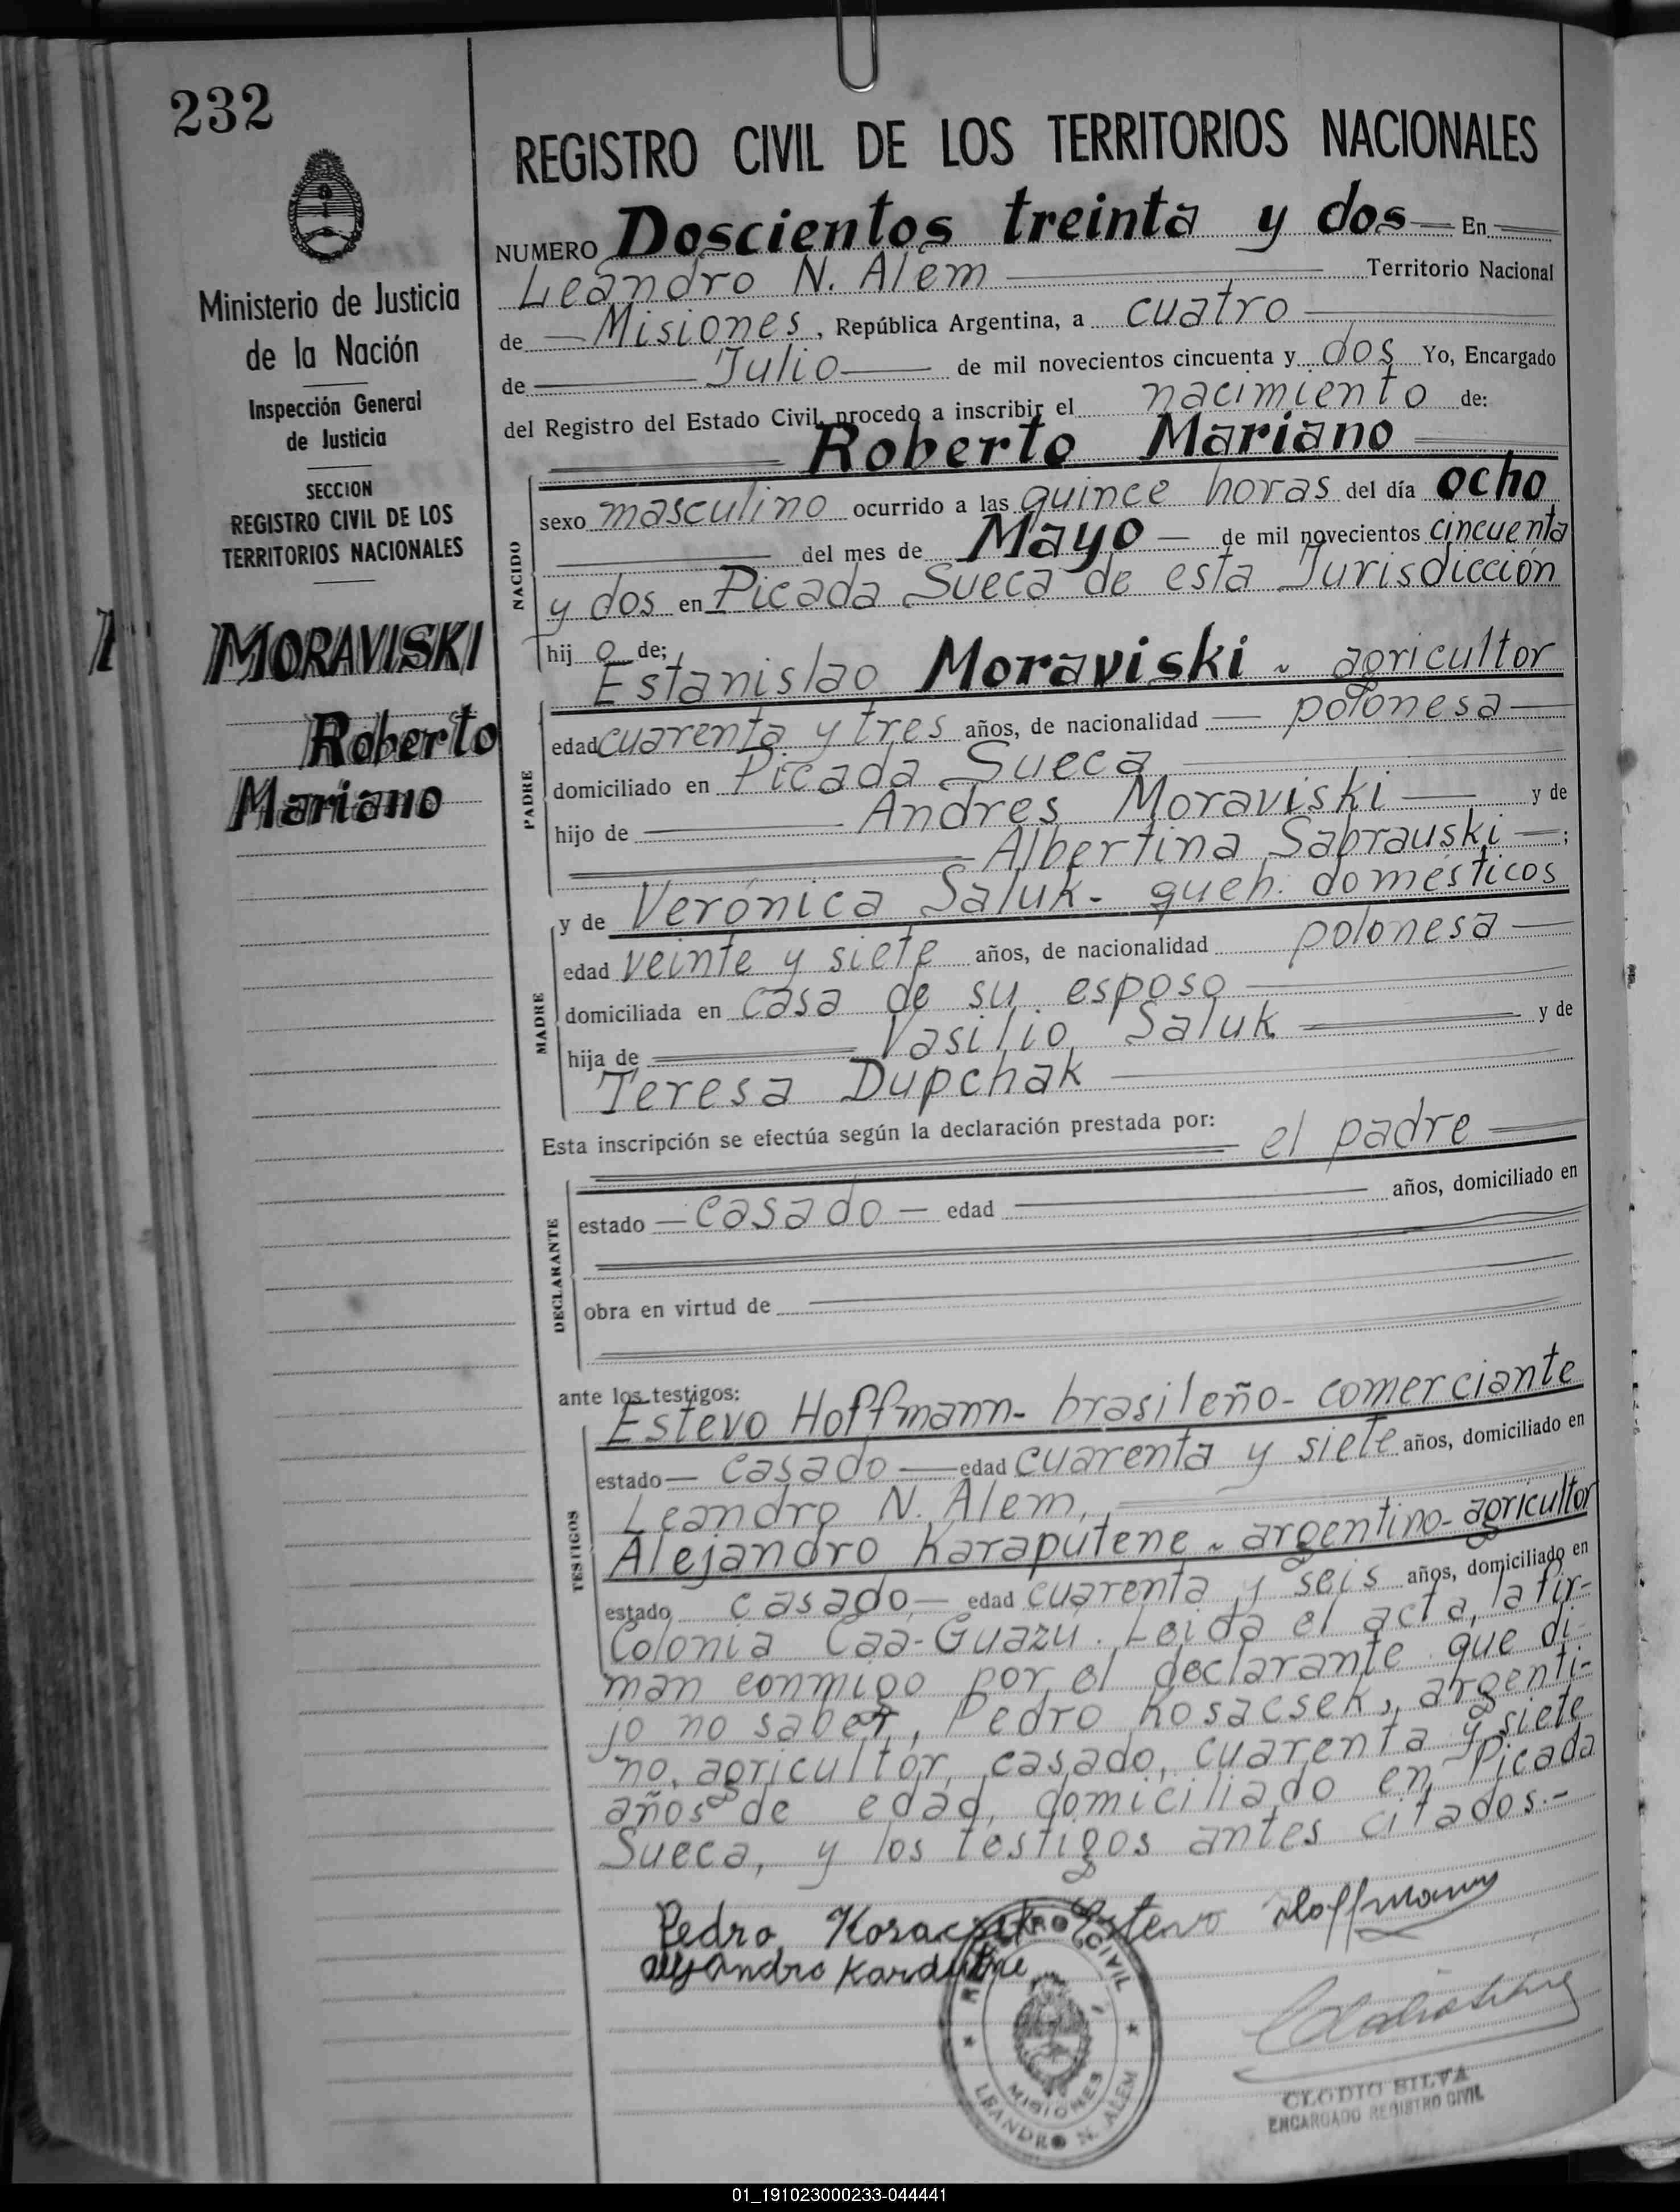 232
Ministerio de Justicia
de la Nación
Inspección General
de Justicia
SECCION
REGISTRO CIVIL DE LOS
TERRITORIOS NACIONALES
MORAVISKI
Roberto
Mariano
REGISTRO CIVIL DE LOS TERRITORIOS NACIONALES
NUMERO Doscientos treinta y dos En
Leandro N. Alem Territorio Nacional
de Misiones, República Argentina, a cuatro
de Julio de mil novecientos cincuenta y dos Yo, Encargado
del Registro del Estado Civil, procedo a inscribir el nacimiento de:
Roberto Mariano
NACIDO
sexo masculino ocurrido a las quince horas del día ocho
del mes de Mayo de mil novecientos cincuenta
y dos en Picada Sueca de esta Jurisdicción
hijo de;
Estanislao Moraviski - agricultor
PADRE
edad cuarenta y tres años, de nacionalidad polonesa
domiciliado en Picada Sueca
hijo de Andres Moraviski y de
Albertina Sabrauski;
y de Verónica Saluk - queh. domésticos
MADRE
edad veinte y siete años, de nacionalidad polonesa
domiciliada en casa de su esposo
hija de Vasilio Saluk y de
Teresa Dupchak
Esta inscripción se efectúa según la declaración prestada por: el padre
DECLARANTE
estado casado edad años, domiciliado en
obra en virtud de
ante los testigos:
Estevo Hoffmann - brasileño - comerciante
TESTIGOS
estado casado edad cuarenta y siete años, domiciliado en
Leandro N. Alem,
Alejandro Karaputene - argentino - agricultor
estado casado, edad cuarenta y seis años, domiciliado en
Colonia Caa-Guazú. Leida el acta, la fir-
man conmigo por el declarante que di-
jo no saber, Pedro Kosacsek, argenti-
no, agricultor, casado, cuarenta y siete
años de edad, domiciliado en Picada
Sueca, y los testigos antes citados.-
Pedro Kosacsek Estevo Hoffmann
Alejandro
REGISTRO CIVIL
MISIONES
LEANDRO N. ALEM
CLODIO SILVA
ENCARGADO REGISTRO CIVIL
01_191023000233-044441